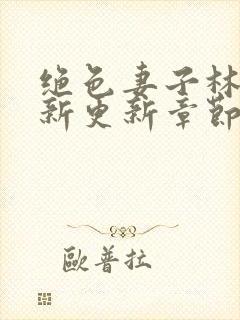 绝色妻子林
新更新章節
歐普拉